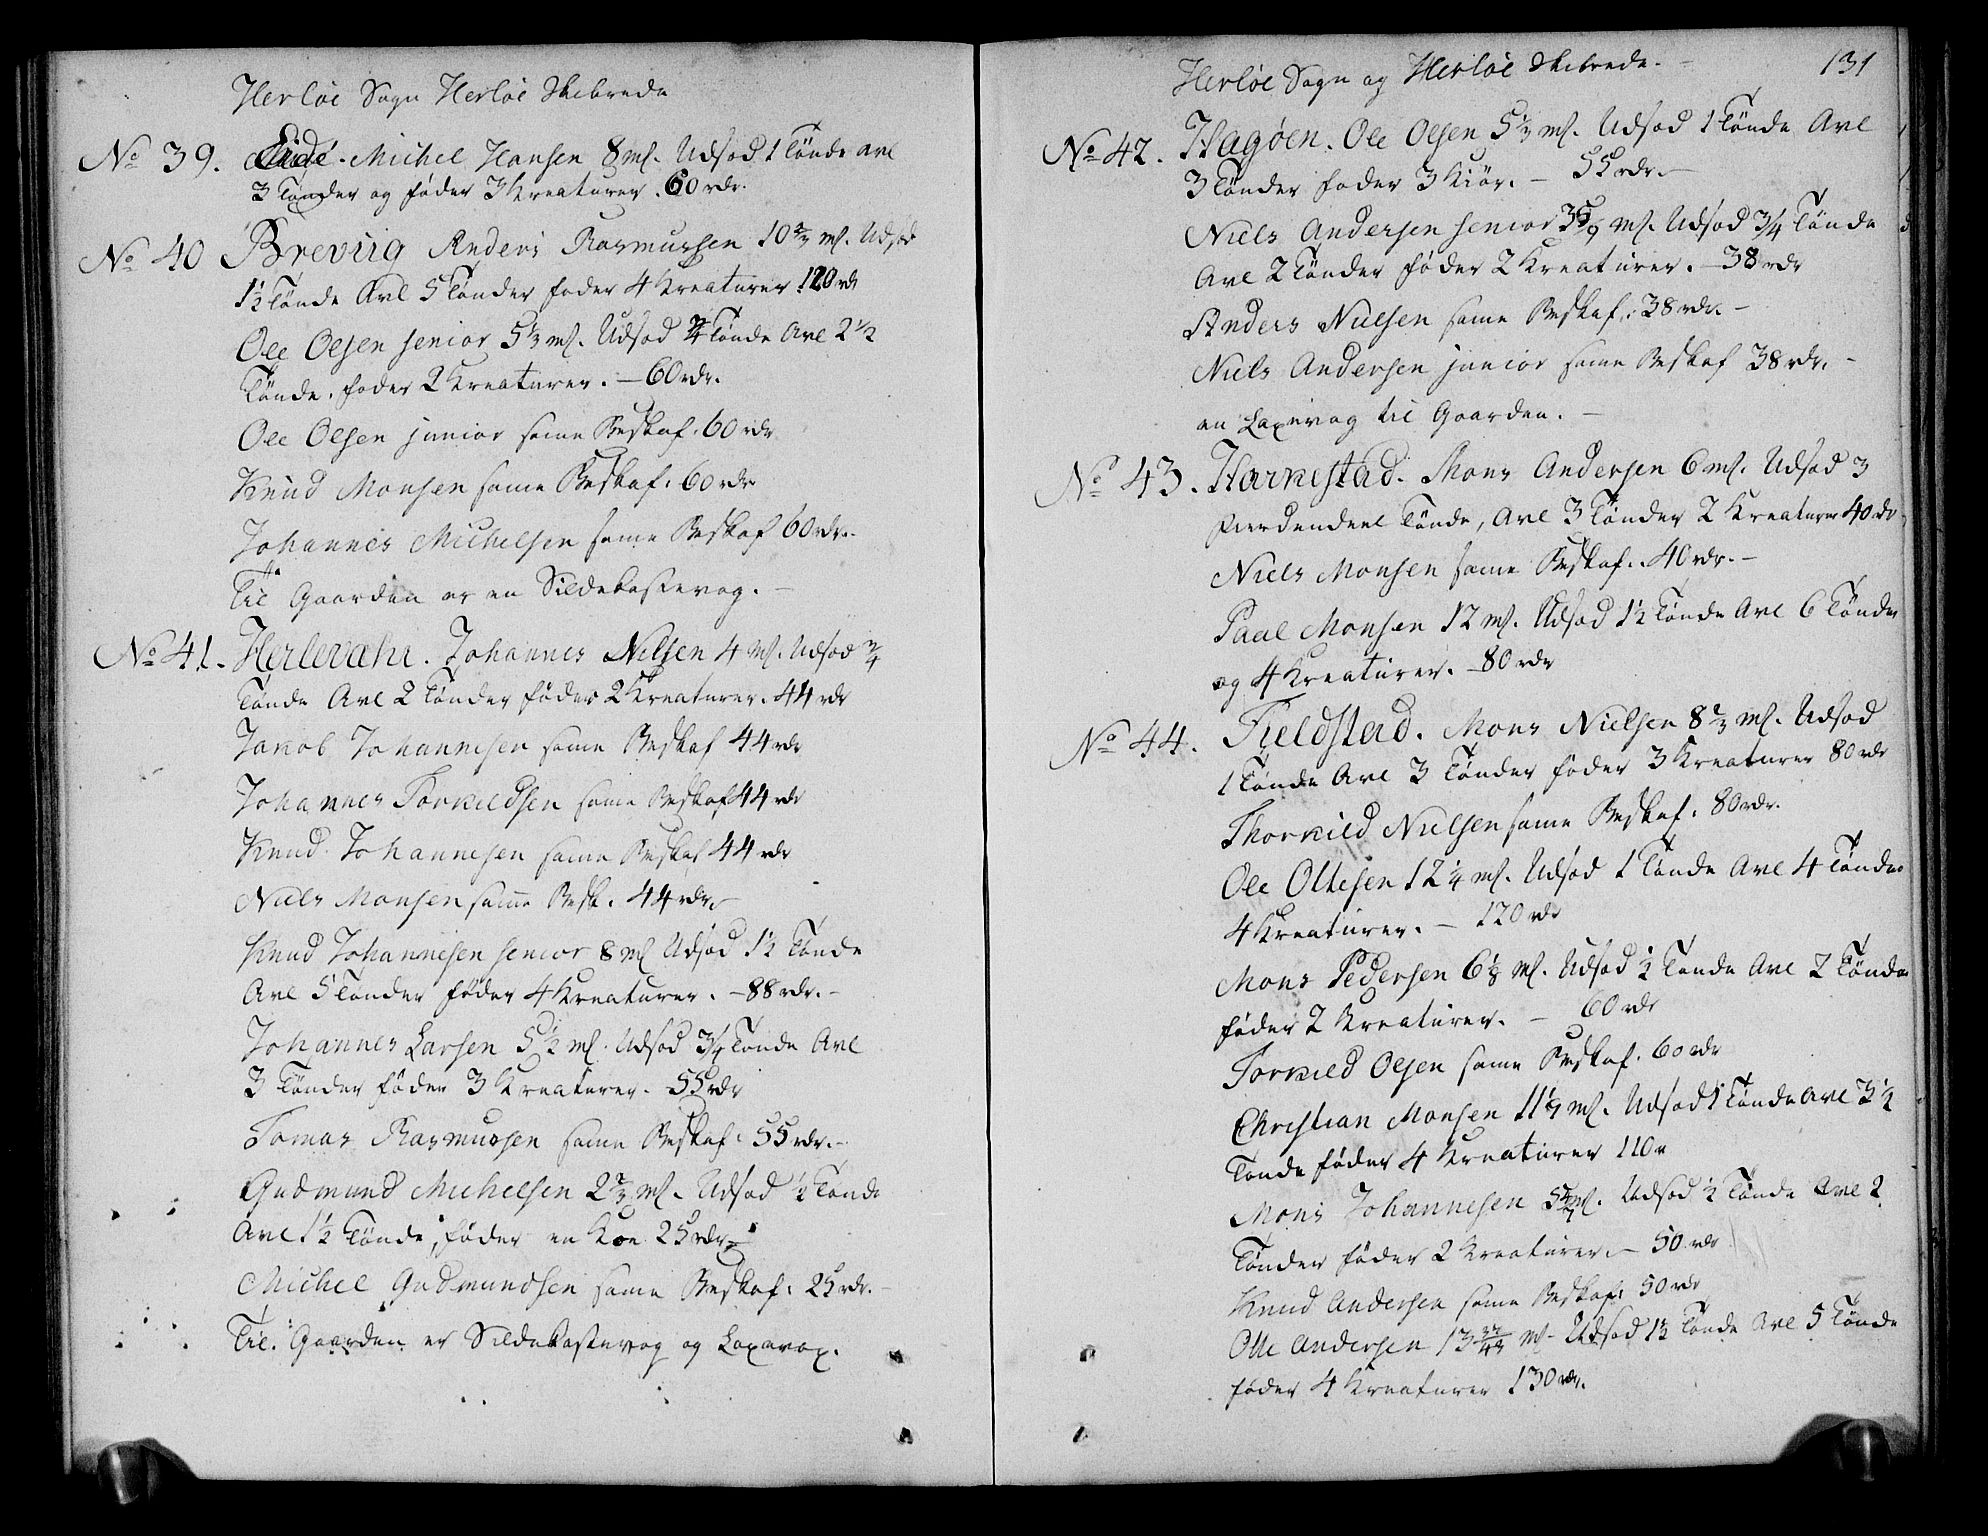 Herløe Sogn Herløe Skibrede
No 39. Eide. Michel Hansen 8 mf. Udsæd 1 Tønde avl
3 Tønder og føder 3 Kreaturer. 60 rdr.
No 40 Breviig Anders Rasmussen 10 2/3 mf. Udsæd
1½ Tønde Avl 5 Tønder føder 4 Kreaturer 120 rdr
Ole Olsen senior 5 1/3 mf. Udsæd 3/4 Tønde Avl 2 1/2
Tønde. føder 2 Kreaturer. – 60 rdr.
Ole Olsen junior same Beskaf. 60 rdr
Knud Monsen same Beskaf. 60 rdr
Johannes Michelsen same Beskaf 60 rdr.
Til Gaarden er en Sildekastevog. –
No 41. Herlevæhr. Johannes Nilsen 4 mf. Udsæd 3/4
Tønde Avl 2 Tønder føder 2 Kreaturer. 44 rdr
Jakob Johannesen same Beskaf 44 rdr
Johannes Torkildsen same Beskaf 44 rdr
Knud Johannesen same Beskaf 44 rdr
Niels Monsen same Besk. 44 rdr. –
Knud Johannesen senior 8 mf Udsæd 1½ Tønde
Avl 5 Tønder føder 4 Kreaturer. – 88 rdr. –
Johannes Larsen 5½ mf. Udsæd 3/4 Tønde Avl
3 Tønder føder 3 Kreaturer. 55 rdr
Tomas Rasmussen same Beskaf: 55 rdr. –
Gudmund Michelsen 2 2/3 mf. Udsæd ½ Tønde
Avl 1½ Tønde, føder en Koe 25 rdr –
Michel Gudmundsen same Beskaf: 25 rdr. –
Til Gaarden er Sildekastevog og Laxevog.
Herløe Sogn og Herløe Skibrede. – 131
No 42. Hagøen. Ole Olsen 5 1/3 mf. Udsæd 1 Tønde Avl
3 Tønder føder 3 Kiør. – 55 rdr. –
Niels Andersen senior 3 5/9 mf. Udsæd 3/4 Tønde
Avl 2 Tønder føder 2 Kreaturer. – 38 rdr
Anders Nielsen same Beskaf: 38 rdr. –
Niels Andersen junior same Beskaf 38 rdr. –
en Laxevog til Gaarden. –
No 43. Harkestad. Mons Andersen 6 mf. Udsæd 3
Fierdendeel Tønde, Avl 3 Tønder 2 Kreaturer 40 rdr
Niels Monsen same Beskaf. 40 rdr. –
Paal Monsen 12 mf. Udsæd 1½ Tønde Avl 6 Tønder
og 4 Kreaturer. – 80 rdr
No 44. Fieldstad. Mons Nielsen 8 2/3 mf. Udsæd
1 Tønde Avl 3 Tønder føder 3 Kreaturer 80 rdr
Thorkild Nielsen same Beskaf. 80 rdr.
Ole Ottesen 12 1/4 mf. Udsæd 1 Tønde Avl 4 Tønder
4 Kreaturer. – 120 rdr
Mons Pedersen 6 1/8 mf. Udsæd ½ Tønde Avl 2 Tønder
føder 2 Kreaturer. – 60 rdr
Torkild Olsen same Beskaf. 60 rdr
Christian Monsen 11 mf. Udsæd 1 Tønde Avl 3½
Tønde føder 4 Kreaturer 110 r
Mons Johannesen mf. Udsæd ½ Tønde Avl 2
Tønder føder 2 Kreaturer. – 50 rdr
Knud Andersen same Beskaf: 50 rdr
Otte Andersen 13 mf – Udsæd 1½ Tønde Avl 5 Tønde
føder 4 Kreaturer 130 rdr.